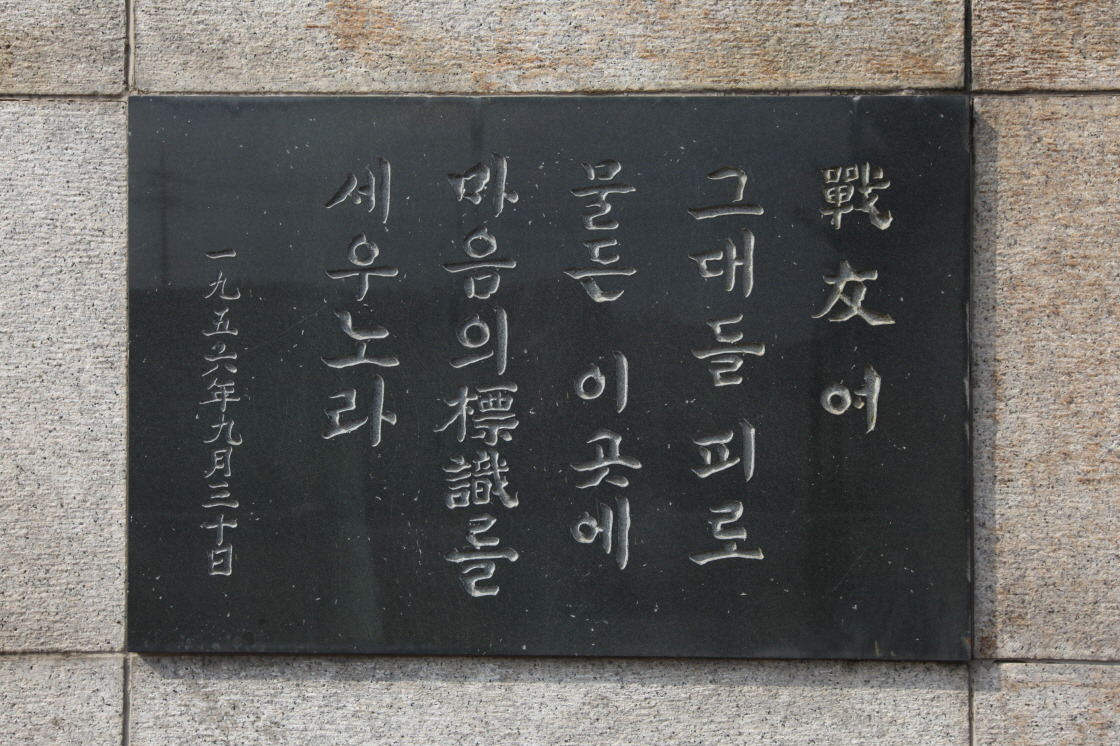 戰友여
그대들 피로
물든 이곳에
마음의 標識를
세우노라
一九五六年九月三十日